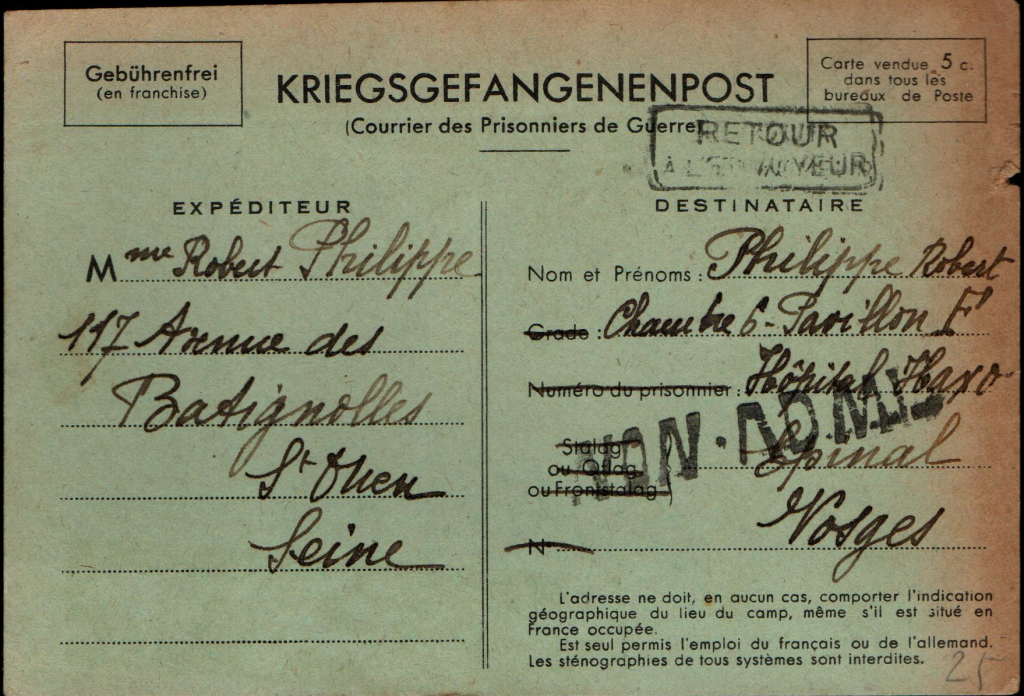 Gebührenfrei
(en franchise)
KRIEGSGEFANGENENPOST
(Courrier des Prisonniers de Guerre)
Carte vendue 5 c.
dans tous les
bureaux de Poste
RETOUR
À L'ENVOYEUR
EXPÉDITEUR
Mme Robert Philippe
117 Avenue des
Batignolles
St Ouen
Seine
DESTINATAIRE
Nom et Prénoms : Philippe Robert
Grade : Chambre 6 - Pavillon F
Numéro du prisonnier : Hôpital Haxo
NON · ADMIS
Stalag
ou Oflag
ou Frontstalag
Epinal
Vosges
N°
L'adresse ne doit, en aucun cas, comporter l'indication
géographique du lieu du camp, même s'il est situé en
France occupée.
Est seul permis l'emploi du français ou de l'allemand.
Les sténographies de tous systèmes sont interdites.
25